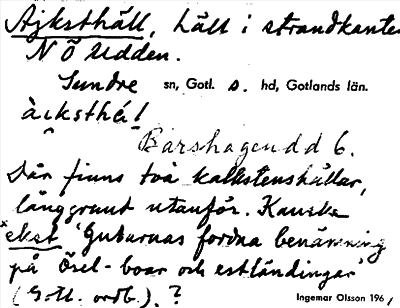 Ajksthäll, häll i strandkanten
N Ö Udden.
Sundre sn, Gotl. s. hd, Gotlands län.
äcksthé̜l
Barshageudd 6.
Där finns två kalkstenshällar,
långgrunt utanför. Kanske
*ekst 'Gutarnas fordna benämning
på Ösel-boar och estländingar'
(Gotl. ordb.). ?
Ingemar Olsson 196